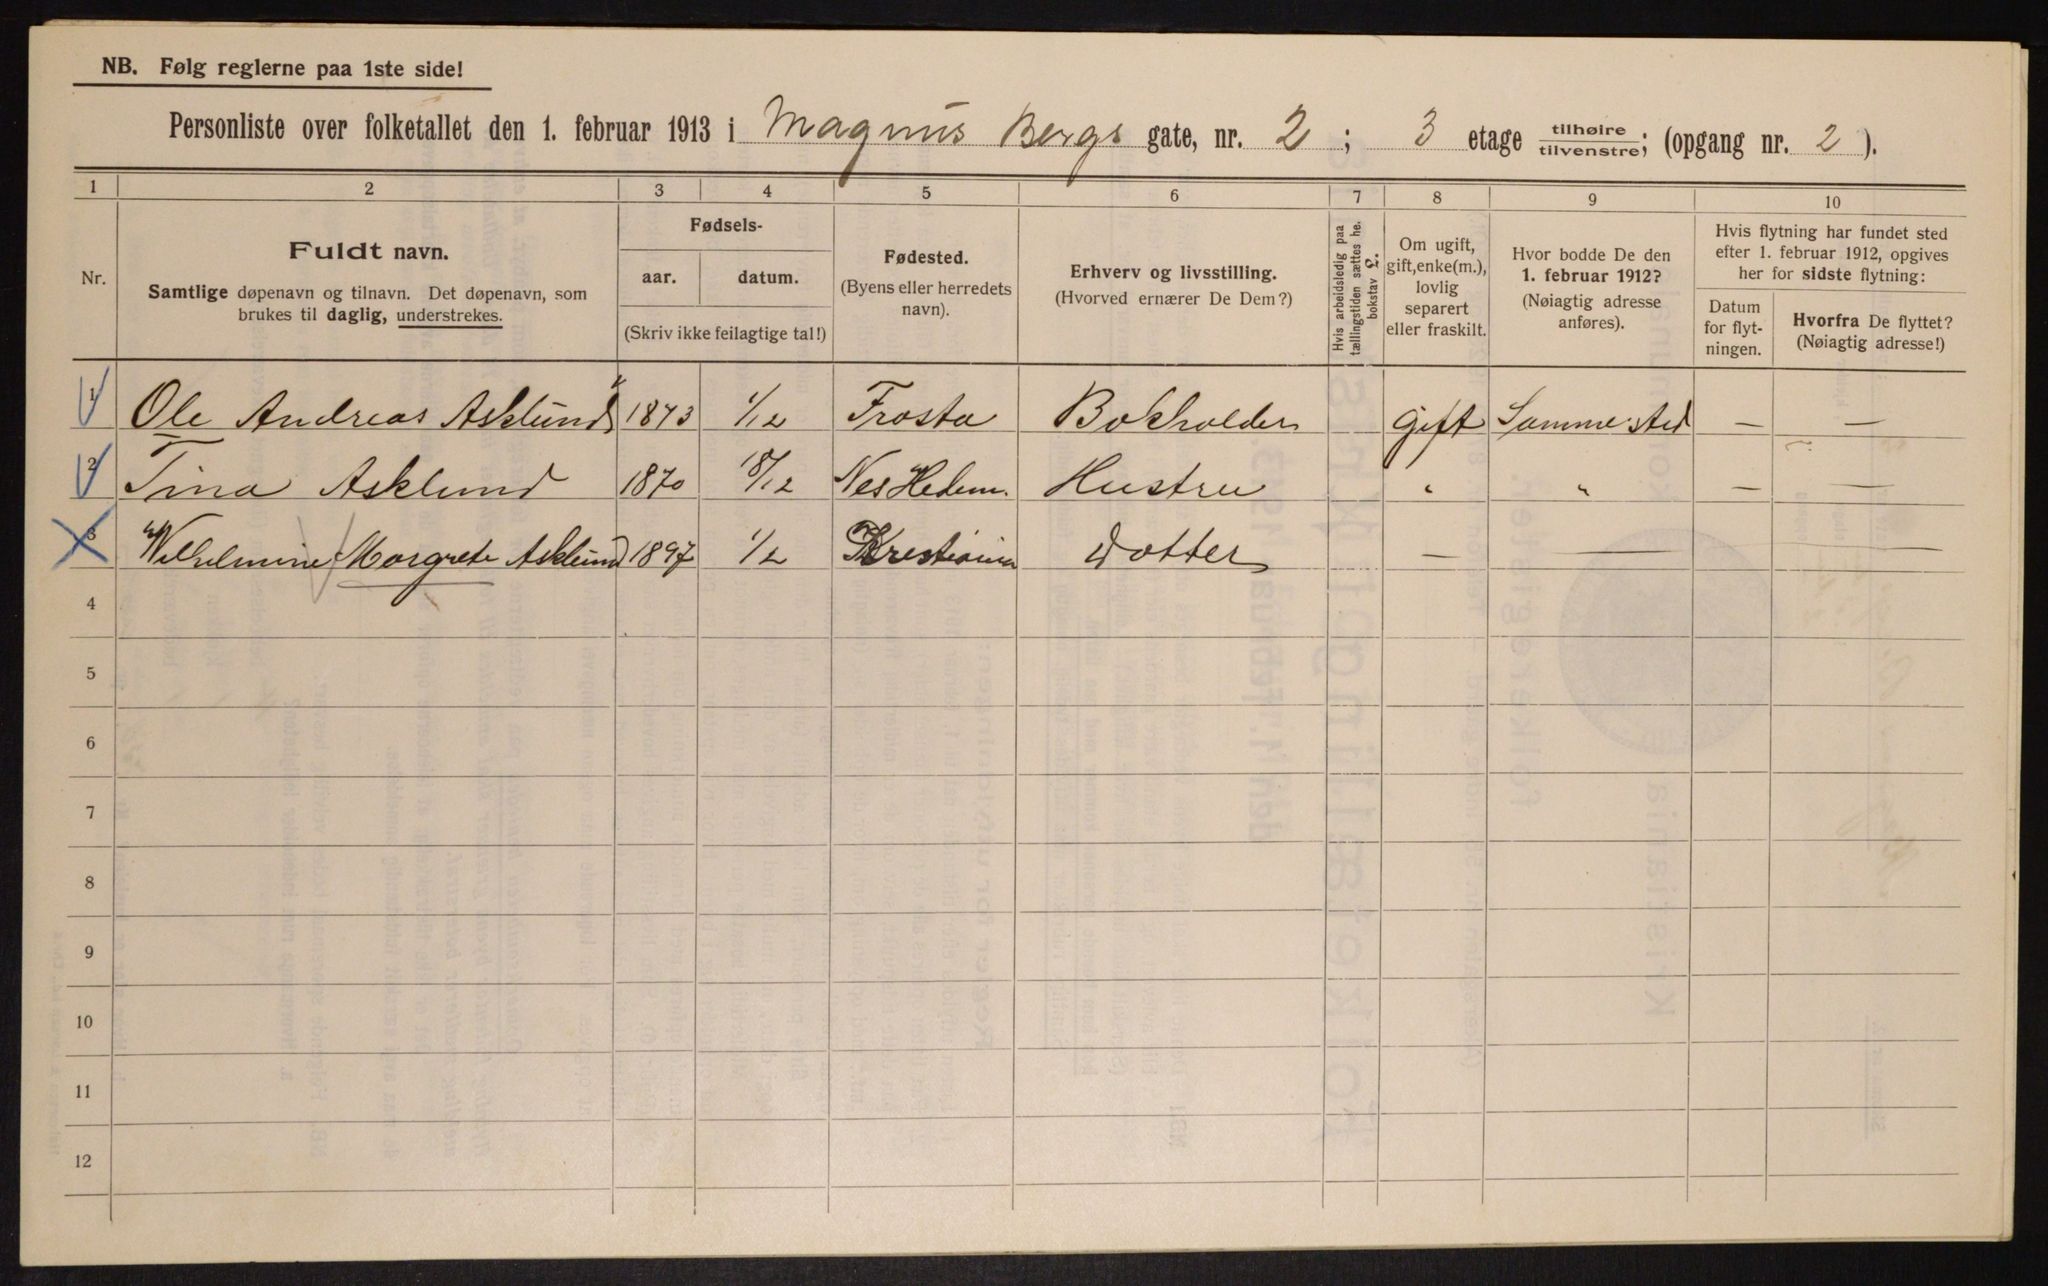 NB. Følg reglerne paa 1ste side!
Personliste over folketallet den 1. februar 1913 i Magnus Bergs gate, nr. 2 ; 3 etage tilhøire/tilvenstre; (opgang nr. 2 ).
1 2 3 4 5 6 7 8 9 10
Nr.
Fuldt navn.
Samtlige døpenavn og tilnavn. Det døpenavn, som
brukes til daglig, understrekes.
Fødsels-
aar. datum.
(Skriv ikke feilagtige tal!)
Fødested.
(Byens eller herredets
navn).
Erhverv og livsstilling.
(Hvorved ernærer De Dem?)
Hvis arbeidsledig paa
tællingstiden sættes he.
bokstav L.
Om ugift,
gift, enke(m.),
lovlig
separert
eller fraskilt.
Hvor bodde De den
1. februar 1912?
(Nøiagtig adresse
anføres).
Hvis flytning har fundet sted
efter 1. februar 1912, opgives
her for sidste flytning:
Datum
for flyt-
ningen.
Hvorfra De flyttet?
(Nøiagtig adresse!)
1 Ole Andreas Asklund 1873 1/12 Frosta Bokholder gift Samme sted — —
2 Tina Asklund 1870 18/12 Nes Hedem. Hustru " " — —
3 Wilhelmine Margrete Asklund 1897 1/2 Kristiania Datter — — —
4
5
6
7
8
9
10
11
12